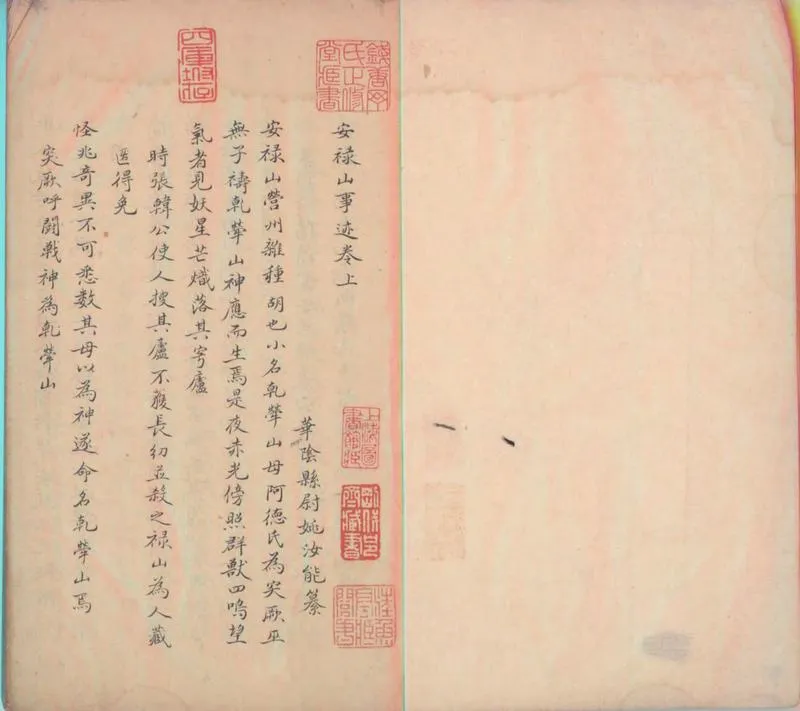 安禄山事迹卷上
華陰縣尉姚汝能纂
安禄山營州雜種胡也小名軋犖山母阿德氏為突厥巫
無子禱軋犖山神應而生焉是夜赤光傍照群獸四鳴望
氣者見妖星芒熾落其穹廬
時張韓公使人搜其廬不獲長幼並殺之禄山為人藏
匿得免
怪兆奇異不可悉数其母以為神遂命名軋犖山焉
突厥呼鬪戰神為軋犖山
上海圖書館藏